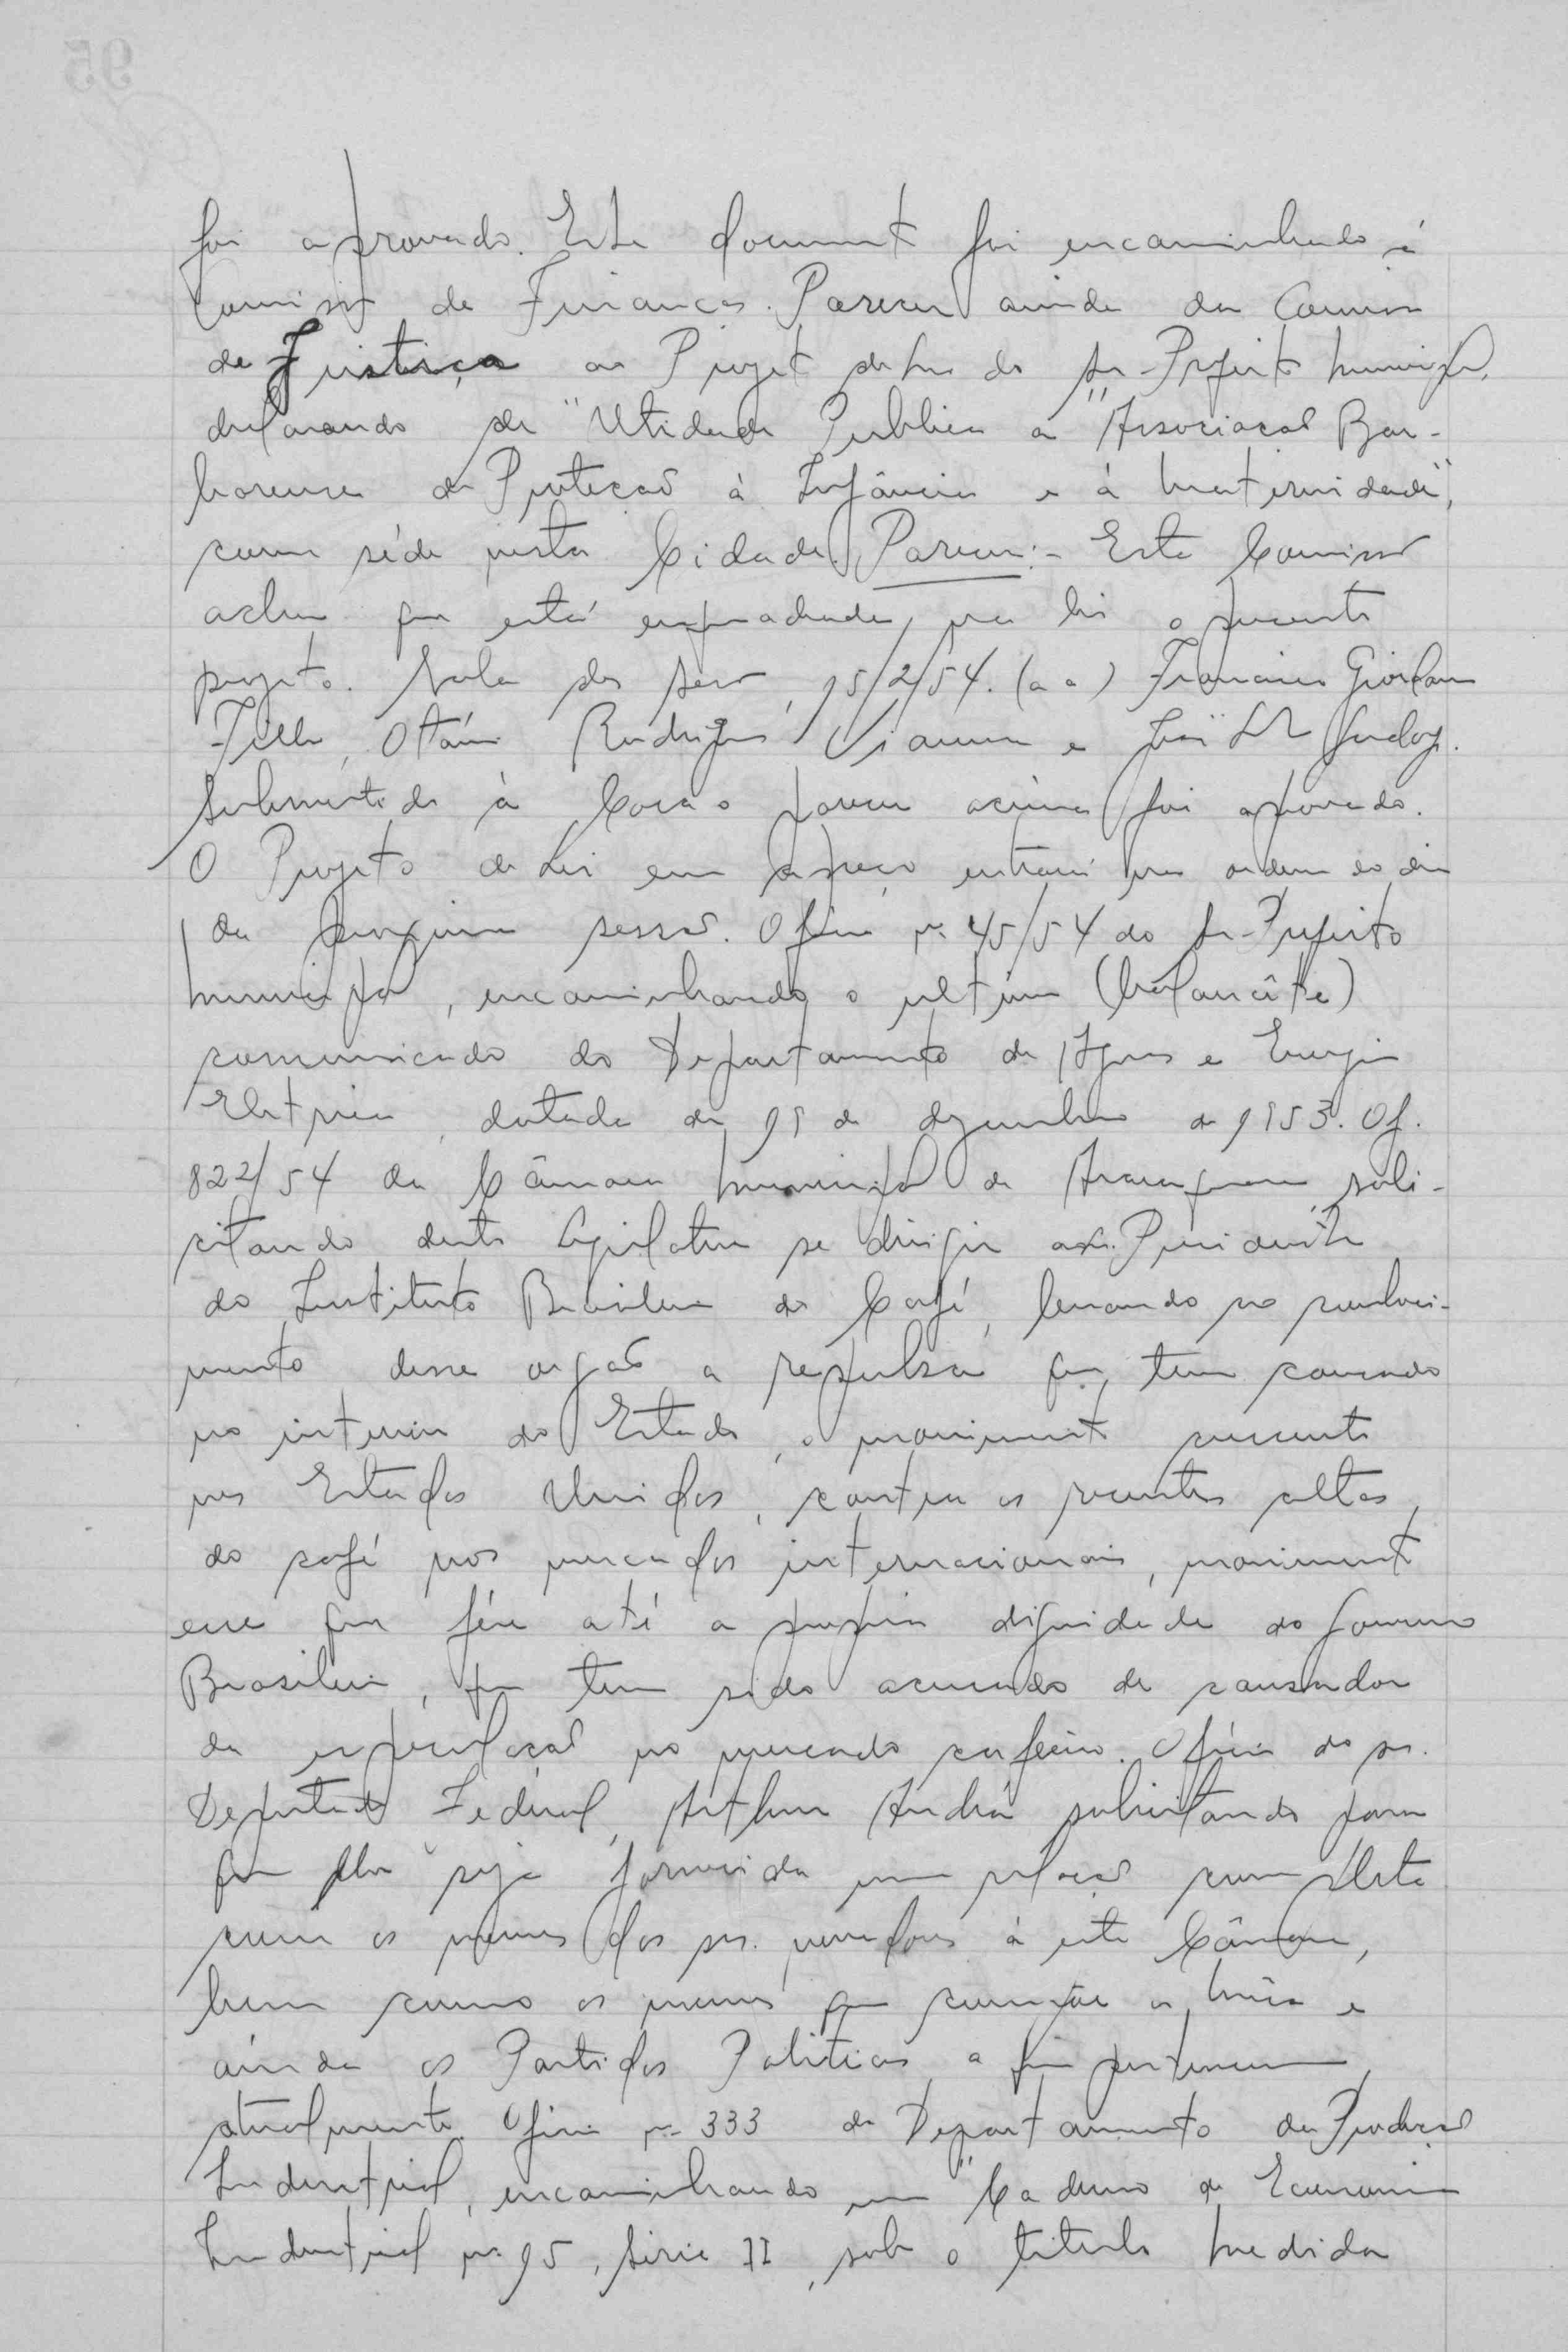 foi aprovado. Este document foi encaminhado à
Comissão de Finanças. Parecer ainda da Comissão
de Justiça ao Projeto de Lei do Sr. Prefeito Municipal,
declarando de "Utidade Publica a "Associação Bar-
barense de Proteção à Infância e à Maternidade",
com séde nesta Cidade. Parecer:- Esta Comissão
acha que está enquadrada na lei o presente
projeto. Sala das Sess, 15/2/54. (a a) Francisco Giordano
Filho, Otávio Rodrigues Vianna e José
Submetido à Casa o parecer acima foi aprovado.
O Projeto de Lei em apreço entrará na ordem do dia
da proxima sessão. Oficio nº 45/54 do Sr. Prefeito
Municipal, encaminhando o ultimo (balancête)
comunicado do Departamento de Aguas e Energia
Eletrica, datada de 19 de dezembro de 1953. Of.
822/54 da Câmara Municipal de Araraquara, soli-
citando desta Legislativa se dirigir ao Sr. Presidente
do Instituto Brasileiro do Café, levando ao conheci-
mento desse orgão a repulsa que tem causado
no interior do Estado, o movimento crescente
nos Estados Unidos, contra as recentes altas
do café nos mercados internacionais, movimento
esse que fére até a propria dignidade do Governo
Brasileiro, que tem sido acusado de causador
da especulação no mercado cafeeiro. Oficio do sr.
Deputado Federal, Arthur Audrá solicitando para
que lhe seja fornecida uma relação completa
com os nomes dos srs. vereadores à esta Câmara,
bem como os nomes que compõe a Mêsa e
ainda os Partidos Politicos a que pertencem
atualmente. Oficio nº 333 do Departamento da Produção
Industrial, encaminhando um "Caderno de Economia
Industrial nº 15, Série II, sob o titulo Medida